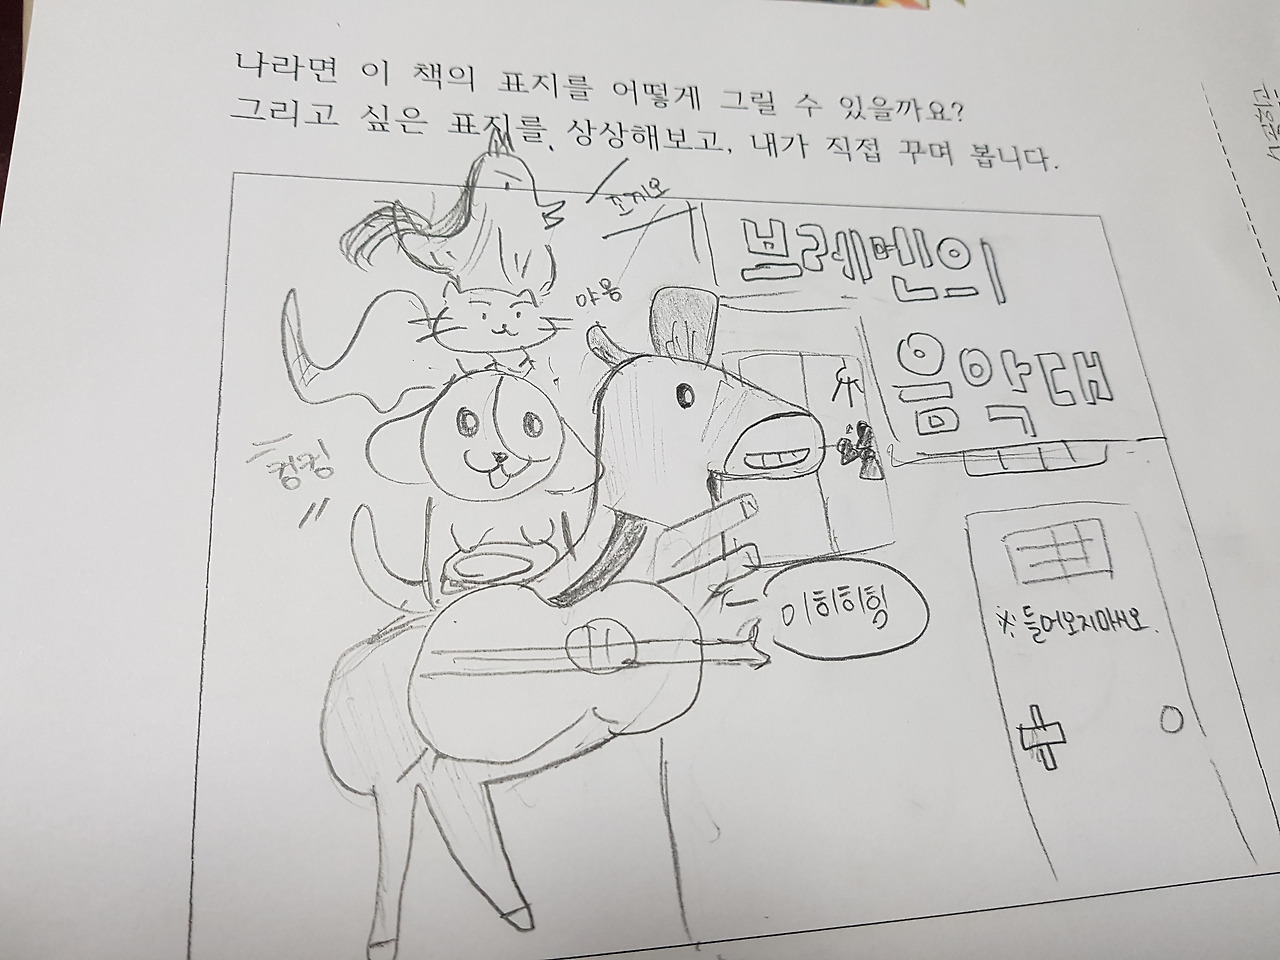 나라면 이 책의 표지를 어떻게 그릴 수 있을까요?
그리고 싶은 표지를 상상해보고, 내가 직접 꾸며 봅니다.
꼬끼오
브레멘의
음악대
야옹
컹컹
이히히힝
※ 들어오지마시오.